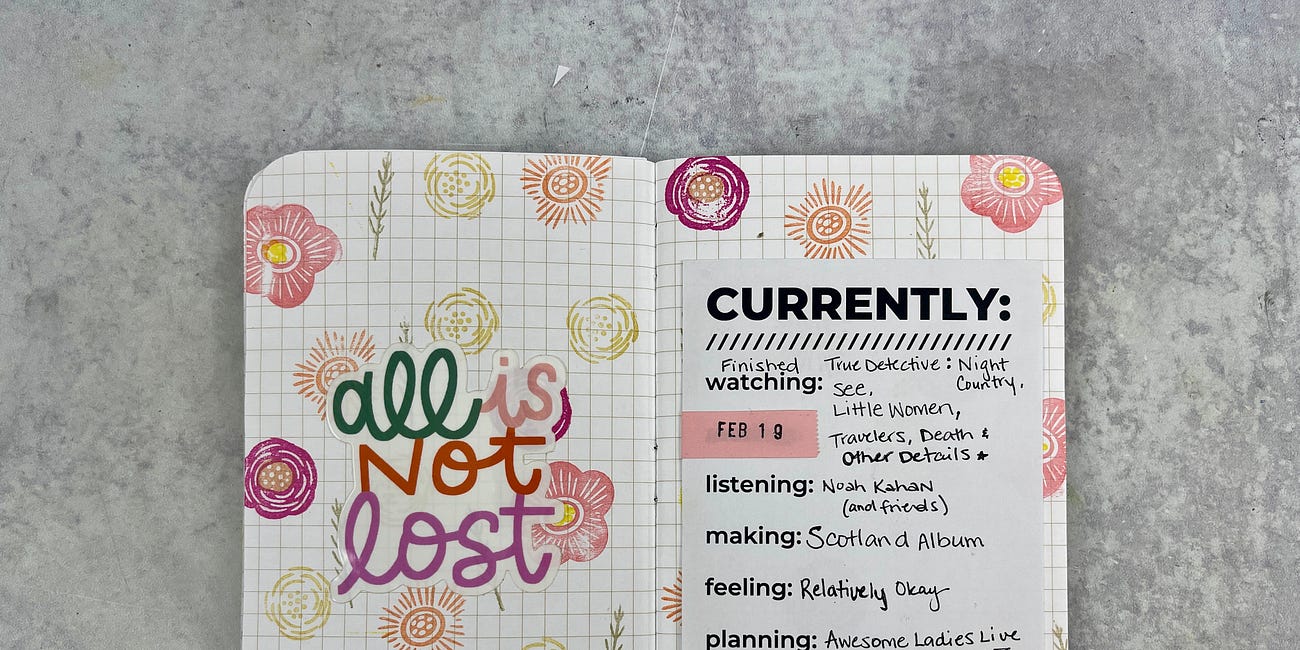 all is
Not
lost
CURRENTLY:
Finished True Detective: Night
watching: See, Country.
Little Women,
FEB 19
Travelers, Death &
Other Details *
listening: Noah Kahan
(and friends)
making: Scotland Album
feeling: Relatively Okay
planning: Awesome Ladies Live